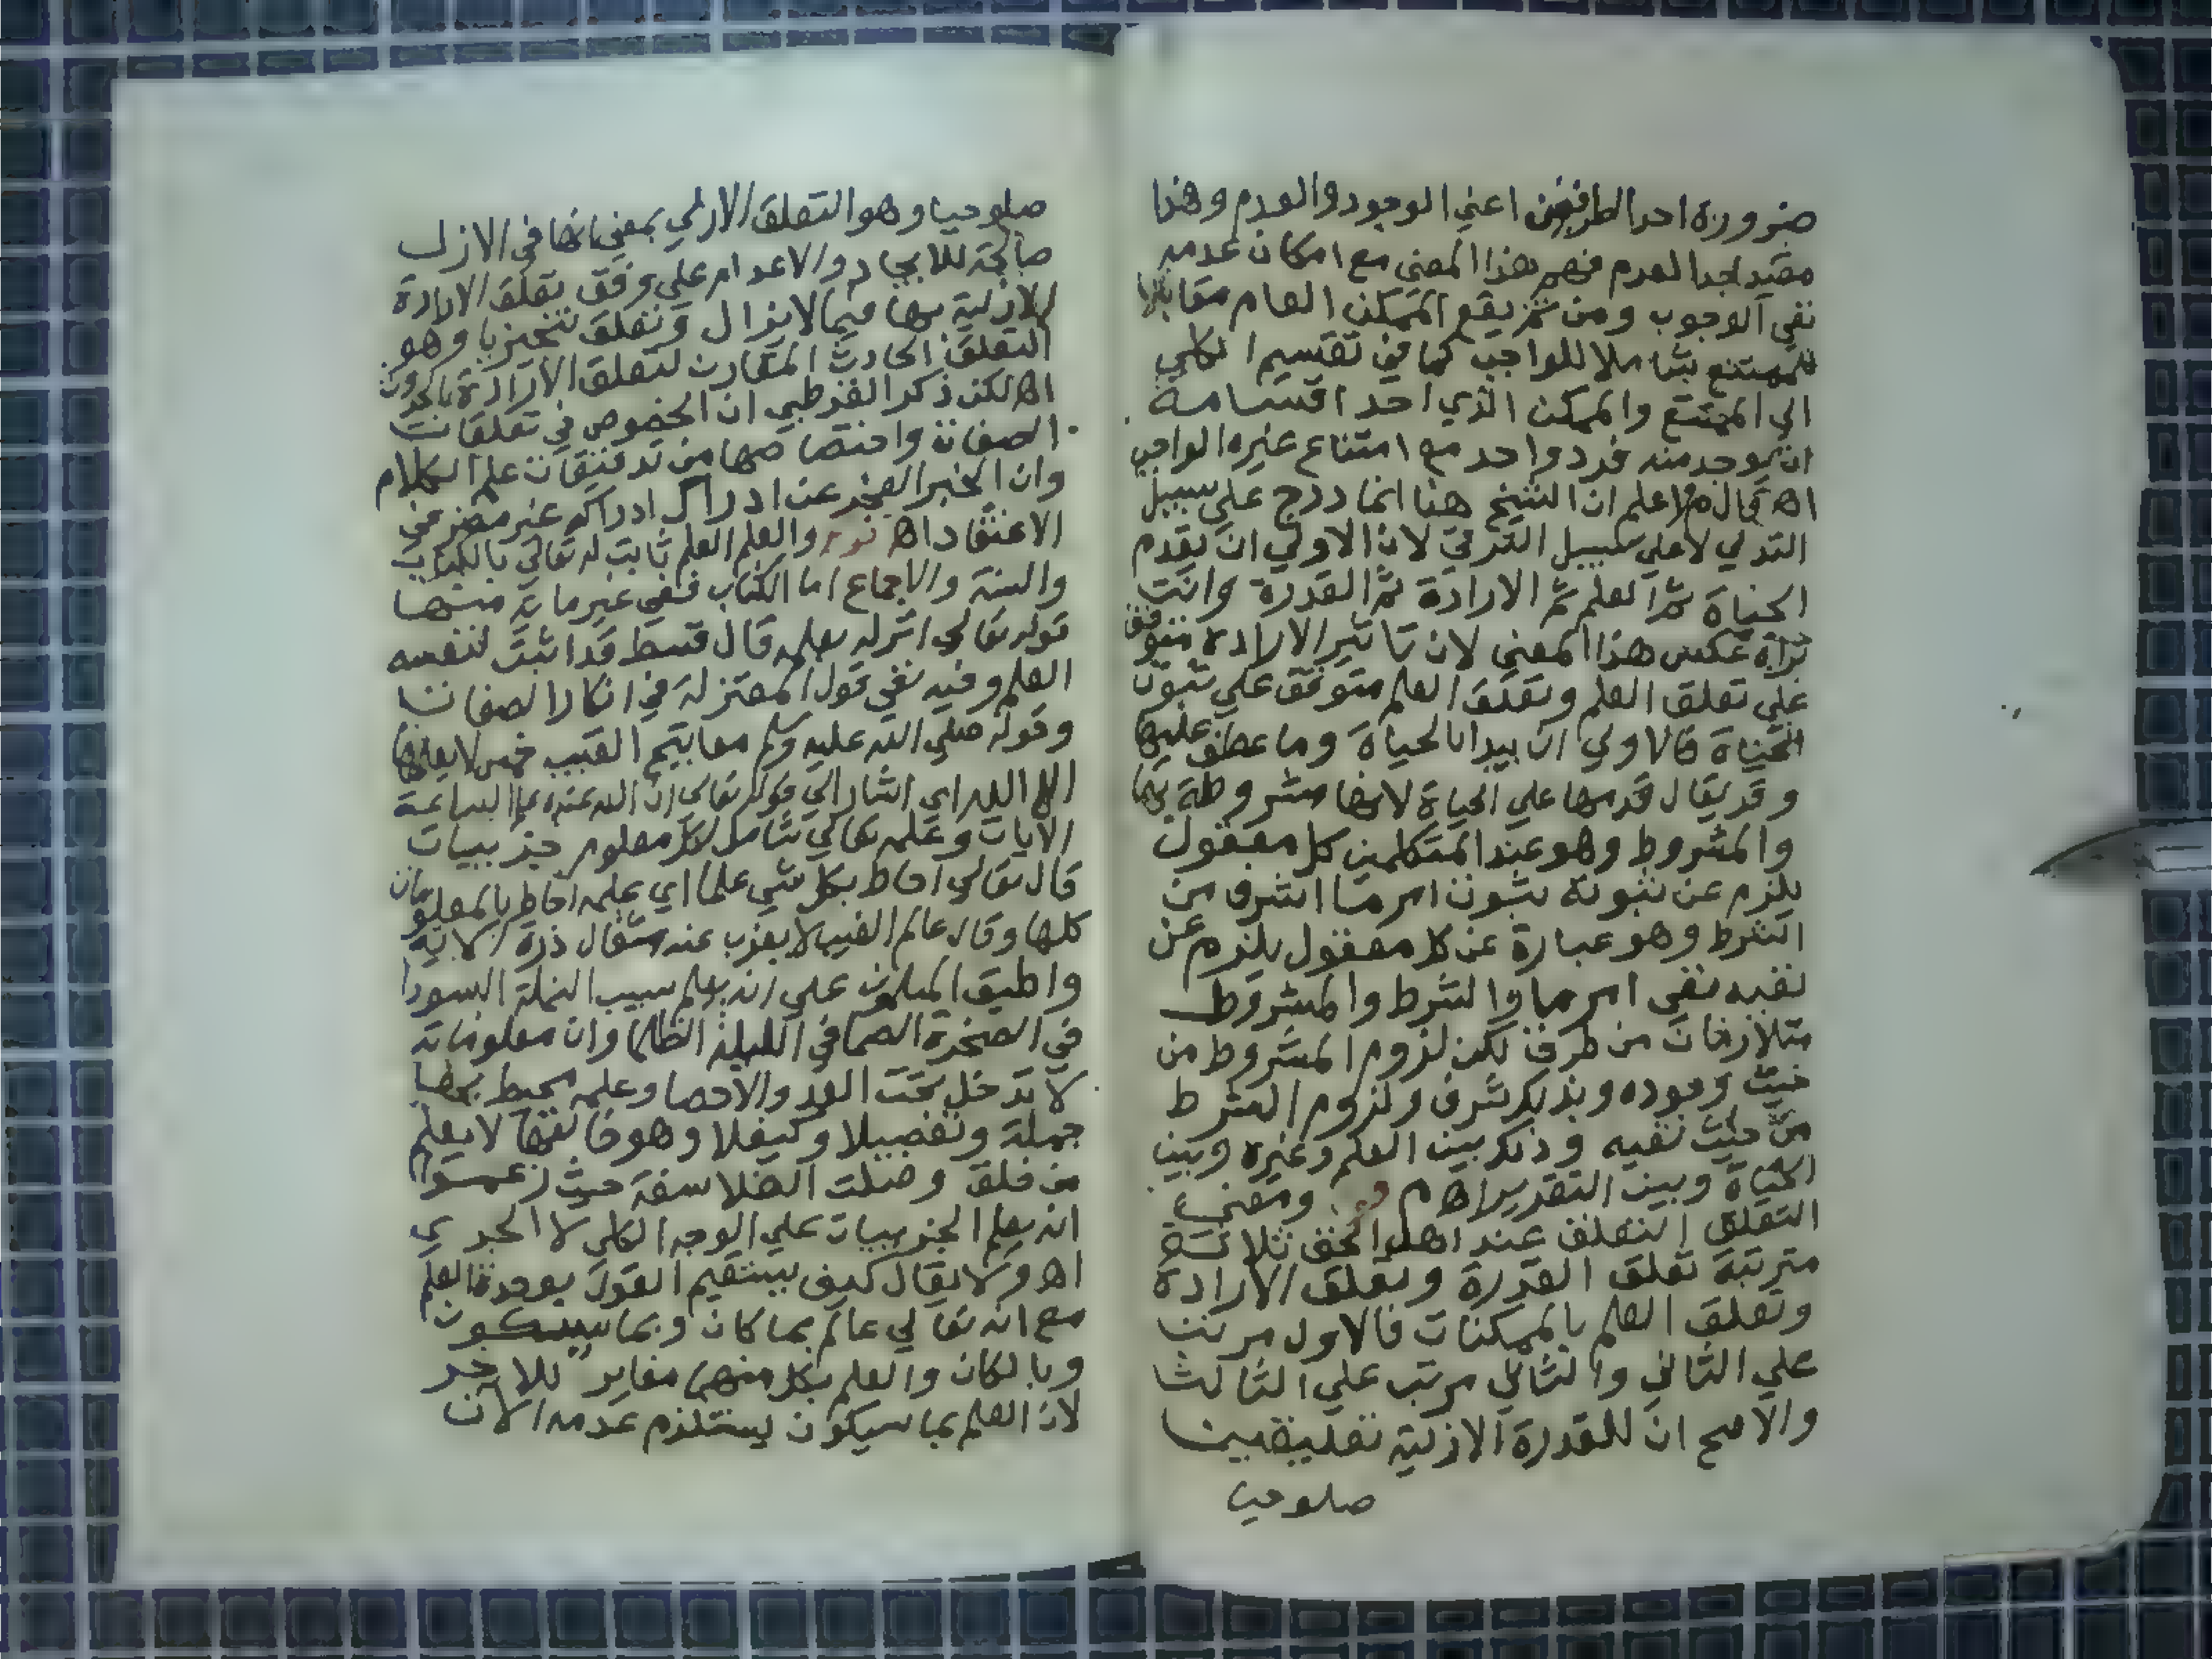 ضرورة احد الطرفين اعني الوجود والعدم وهذا
مقيد العدم فهو هذا المعنى مع امكان عدمه
نفي الوجوب ومن ثم يقع الممكن العام مقابلا
للممتنع شاملا للواجب كما في تقسيم الكلي
الي الممتنع والممكن الذي احد اقسامه
ان يوجد منه فرد واحد مع امتناع غيره الواجب
اه قال م واعلم ان الشيخ هنا انما درج علي سبيل
التدلي لا علي سبيل الترقي لان الاولي ان يقدم
الحياة ثم العلم ثم الارادة ثم القدرة وانت
تراه عكس هذا المعني لان تاثير الارادة متوقف
علي تعلق العلم وتعلق العلم متوقف علي ثبوت
الحياة فالاولي ان يبدا بالحياة وما عطف عليها
وقد يقال قدمها علي الحياة لانها مشروطة بها
والمشروط وهو عند المتكلمين كل معقول
يلزم عن ثبوته ثبوت امر ما اشرف من
الشرط وهو عبارة عن كل معقول يلزم عن
نفيه نفي امر ما والشرط والمشروط
متلازمان من طرف لكن لزوم المشروط من
حيث وجوده وبذلك شرف ولزوم الشرط
من حيث نفيه وذلك بين العلم وغيره وبين
الحياة وبين التقديراه م ومعني
التعلق التعلق عند اهل الحق ثلاثة
مترتبة تعلق القدرة وتعلق الارادة
وتعلق العلم بالممكنات فالاول مرتب
علي الثاني والثاني مرتب علي الثالث
والاصح ان للقدرة الازلية تعليقين
صلوحيا
صلوحيا وهو التعلق الازلي بمعني انها في الازل
صالحة للايجاد والاعدام علي وفق تعلق الارادة
الازلية بها فيما لا يزال وتعلق تنجيزيا وهو
التعلق الحادث المقارن لتعلق الارادة بالحدوث
اه لكن ذكر القرطبي ان الخصوص في تعلقات
الصفات واختصاصها من تدقيقات علم الكلام
وان العجز عن ادراك ادراكه غير مضر في
الاعتقاد اه والعلم العلم ثابت له تعالي بالكتاب
والسنة والاجماع اما الكتاب ففي غير ما اية منها
قوله تعالي انزله بعلمه قال قسط قد اثبت لنفسه
العلم وفيه نفي قول المعتزلة في انكار الصفات
وقوله صلي الله عليه وسلم مفاتيح الغيب خمس لا يعلمها
الا الله اي اشار الي قوله تعالي ان الله عنده علم الساعة
الايات وعلمه تعالي شامل لكل معلوم جزييات
قال تعالي احاط بكل شي علما اي علمه احاط بالمعلومات
كلها وقال عالم الغيب لا يعزب عنه مثقال ذرة الاية
واطبق المسلمون علي انه يعلم دبيب النملة السودا
في الصخرة الصما في الليلة الظلما وان معلوماته
لا تدخل تحت العد والاحصا وعلمه محيط بها
جملة وتفصيلا وكيف لا وهو خالقها لا يعلم
من خلق وضلت الفلاسفة حيث زعموا
انه يعلم الجزييات علي الوجه الكلي لا الجزي
اه ولا يقال كيف يستقيم القول بوحدة العلم
مع انه تعالي عالم بما كان وبما سيكون
وبالكان والعلم بكل منهما مغاير للاخر
لان العلم بما سيكون يستلزم عدمه الان